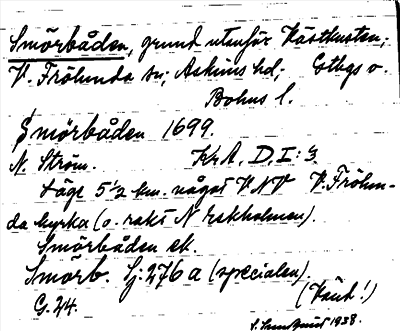 Smörbåden, grund utanför Västkusten;
V. Frölunda sn; Askims hd; Gtbgs o.
Bohus l.
Smörbåden 1699.
N. Ström. Kr A. D. I: 3
Läge 5 1/2 km. något V. NV V. Frölun-
da kyrka (o. rakt N Rekholmen).
Smörbåden ek.
Smörb. Gj: 276 a (specialen).
(Vänd!)
G. 24. 1938.